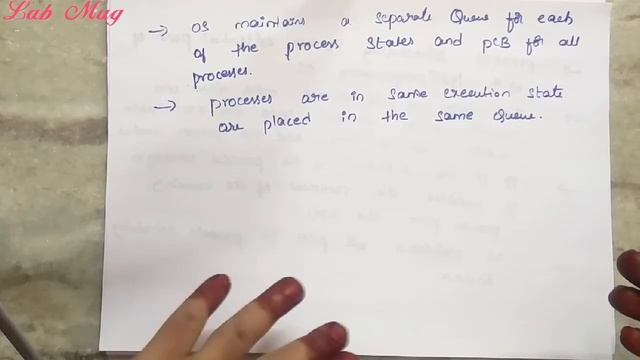 Lab Mug
→ OS maintains a separate Queue for each
of the process states and PCB for all
processes.
→ processes are in same execution state
are placed in the same Queue.